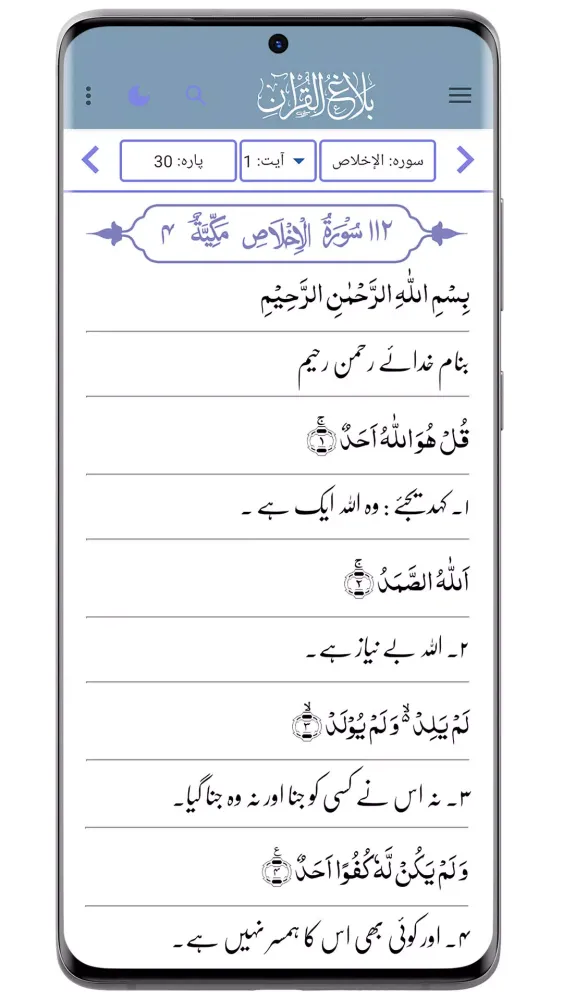 بلاغ القرآن
سورہ: الإخلاص آیت: 1 پارہ: 30
١١٢ سُوْرَةُ الْاِخْلَاصِ مَكِّيَّةٌ ۴
بِسْمِ اللّٰهِ الرَّحْمٰنِ الرَّحِيْمِ
بنام خدائے رحمن رحیم
قُلْ هُوَ اللّٰهُ اَحَدٌ ۚ﴿۱﴾
۱۔ کہدیجئے : وہ اللہ ایک ہے ۔
اَللّٰهُ الصَّمَدُ ۚ﴿۲﴾
۲۔ اللہ بے نیاز ہے ۔
لَمْ يَلِدْ ۙ۬ وَلَمْ يُوْلَدْ ۙ﴿۳﴾
۳۔ نہ اس نے کسی کو جنا اور نہ وہ جنا گیا۔
وَلَمْ يَكُنْ لَّهٗ كُفُوًا اَحَدٌ ﴿۴﴾ع
۴۔ اور کوئی بھی اس کا ہمسر نہیں ہے ۔